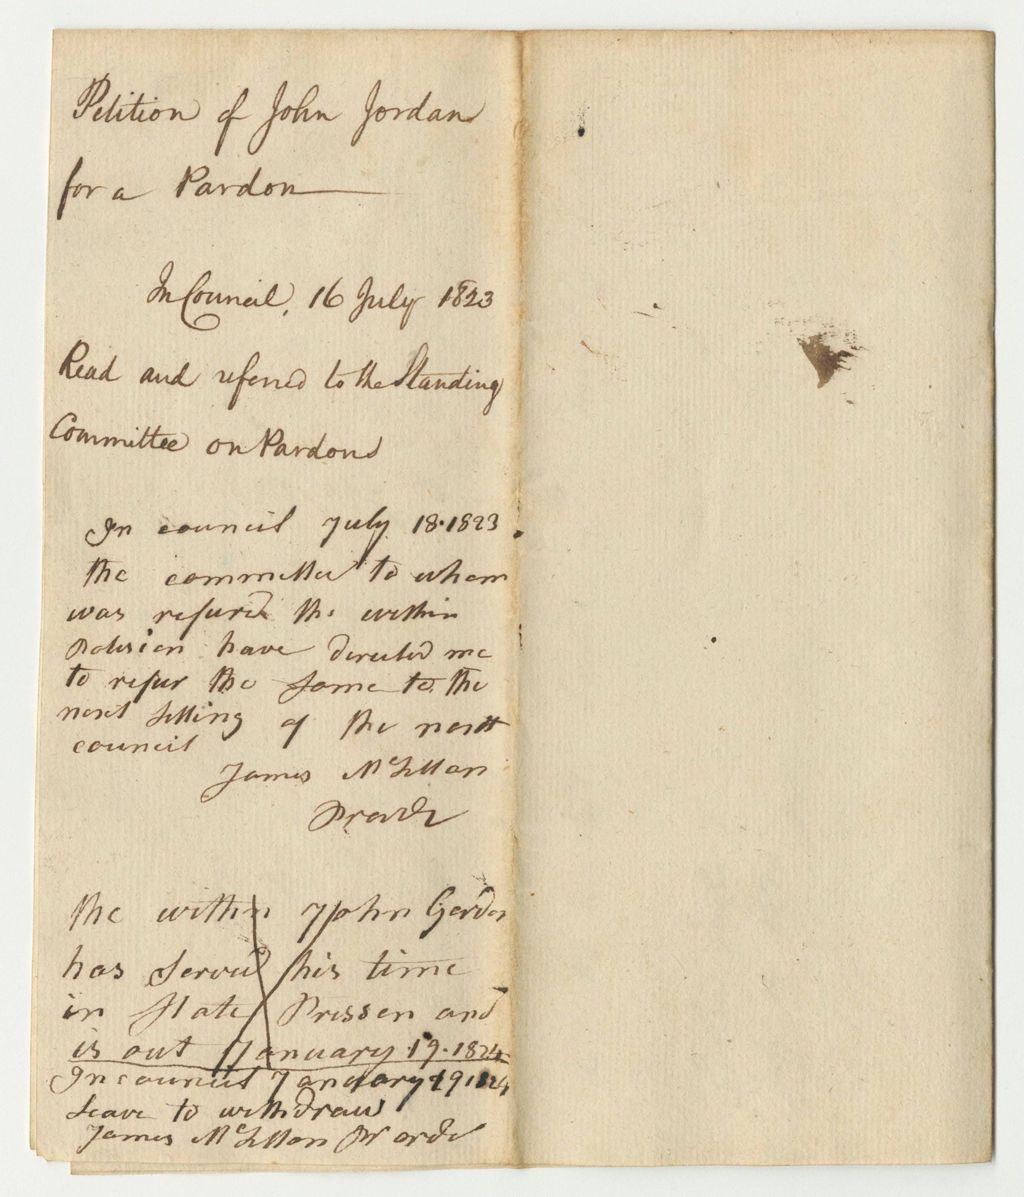 Petition of John Jordan
for a Pardon
In Council, 16 July 1823
Read and referred to the Standing
Committee on Pardons
In council July 18. 1823
the committee to whom
was refured the within
have directed me
to refur the same to the
next setting of the
council
James McLellan
the within John Gordon
has served his time
in State Prissen and
is out January 19. 1824
In council January 19 1824
Leave to withdraw
James McLellan